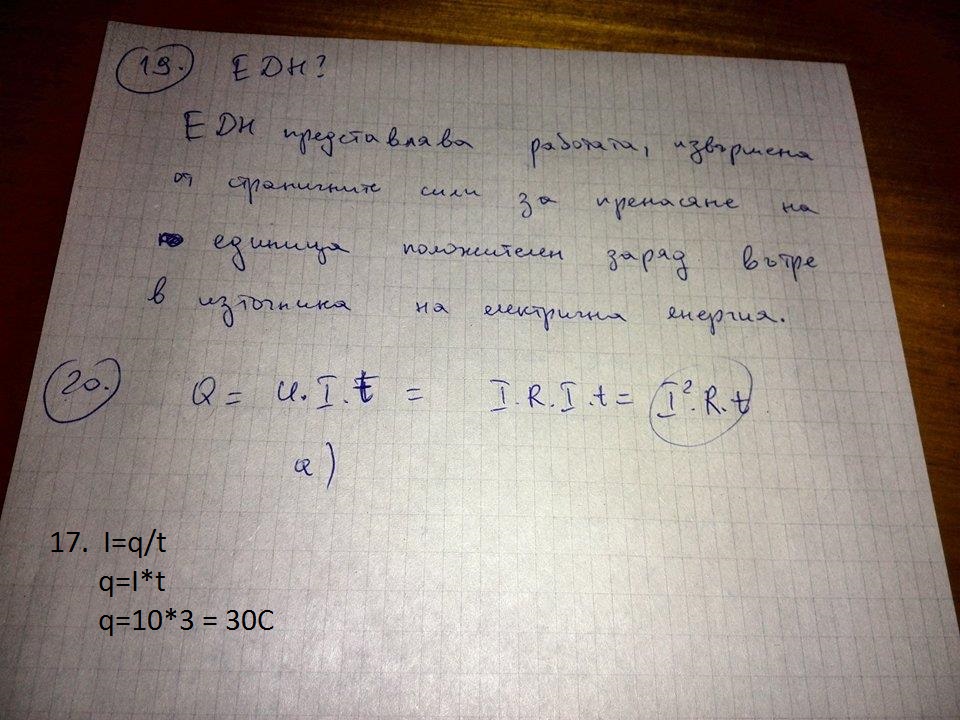 19. ЕДН?
ЕДН представлява работата, извършена
от страничните сили за пренасяне на
единица положителен заряд вътре
в източника на електрична енергия.
20. Q = U.I.t = I.R.I.t = I².R.t
а)
17. I=q/t
q=I*t
q=10*3 = 30C